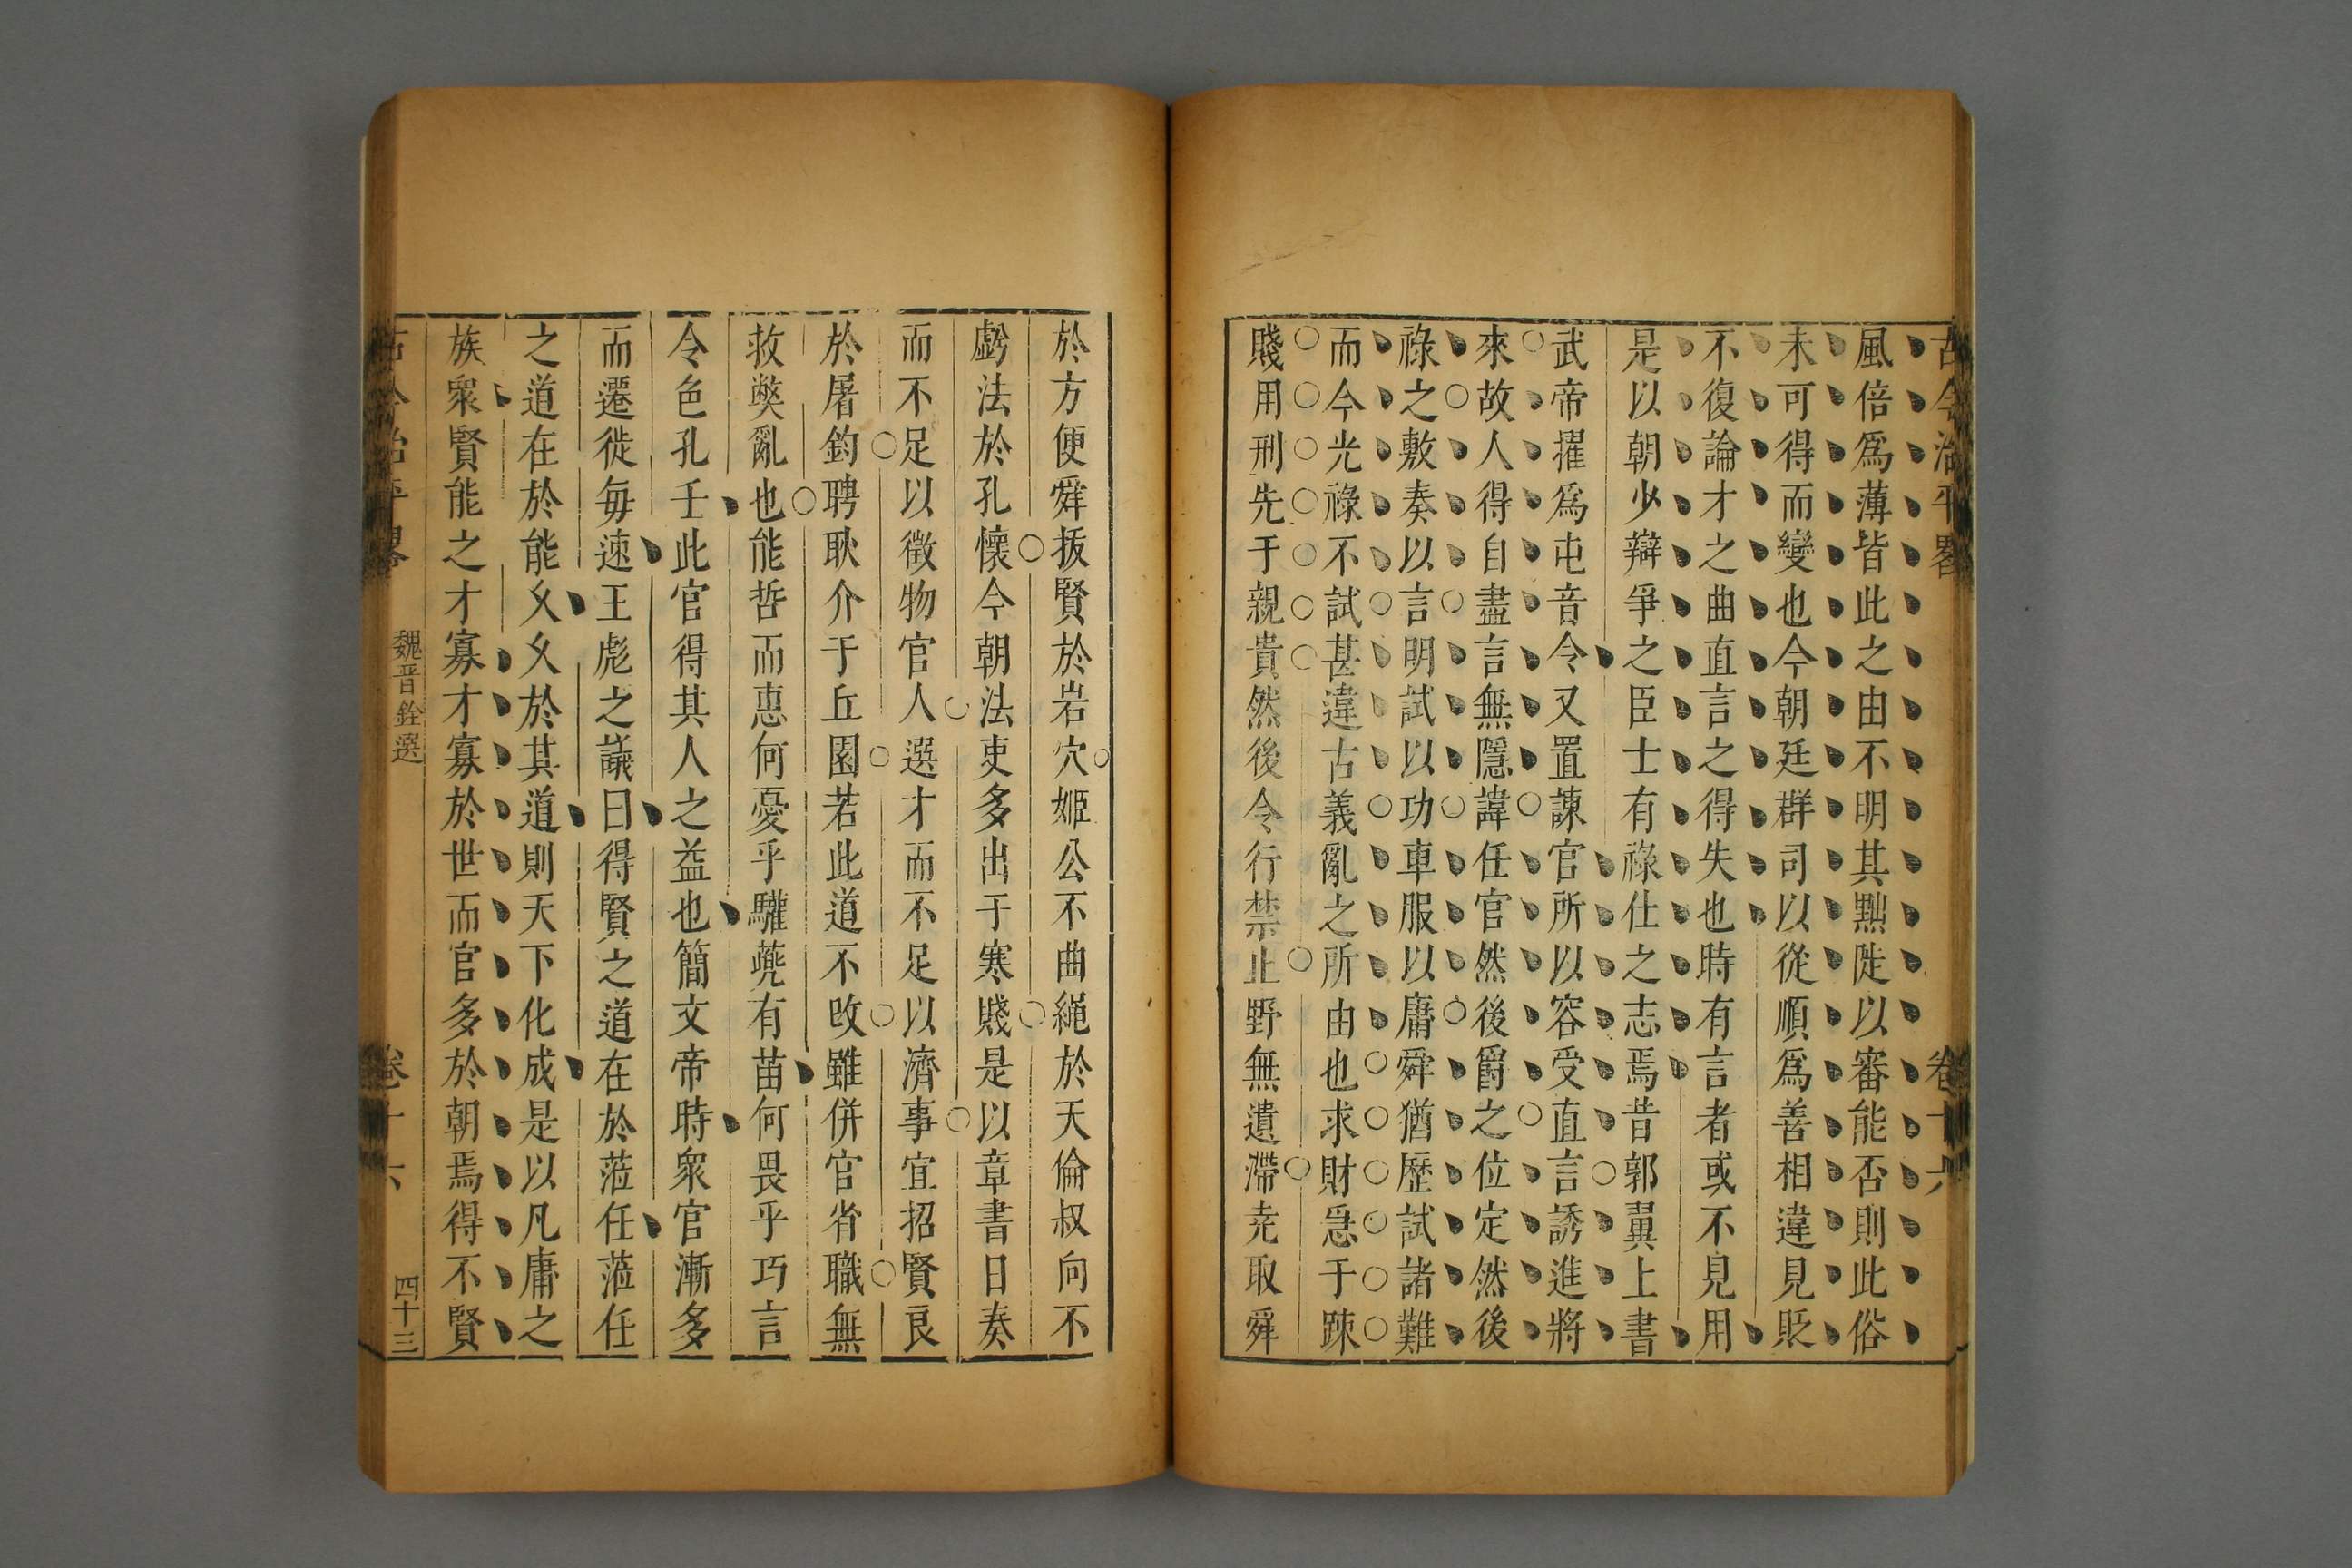 古今治平畧 卷十六
風倍爲薄皆此之由不明其黜陟以審能否則此俗
未可得而變也今朝廷群司以從順爲善相違見貶
不復論才之曲直言之得失也時有言者或不見用
是以朝少辯爭之臣士有祿仕之志焉昔郭翼上書
武帝擢爲屯音令又置諫官所以容受直言誘進將
來故人得自盡言無隱諱任官然後爵之位定然後
祿之敷奏以言明試以功車服以庸舜猶歷試諸難
而今光祿不試甚違古義亂之所由也求財急于踈
賤用刑先于親貴然後令行禁止野無遺滯尭取舜
於方便舜拔賢於岩穴姬公不曲繩於天倫叔向不
虧法於孔懷今朝法吏多出于寒賤是以章書日奏
而不足以徵物官人選才而不足以濟事宜招賢良
於屠鈞聘耿介于丘園若此道不改雖併官省職無
救獘亂也能哲而惠何憂乎驩兠有苗何畏乎巧言
令色孔壬此官得其人之益也簡文帝時衆官漸多
而遷徙每速王彪之議曰得賢之道在於蒞任蒞任
之道在於能乆乆於其道則天下化成是以凡庸之
族衆賢能之才寡才寡於世而官多於朝焉得不賢
古今治平畧 魏晋銓選 卷十六 四十三